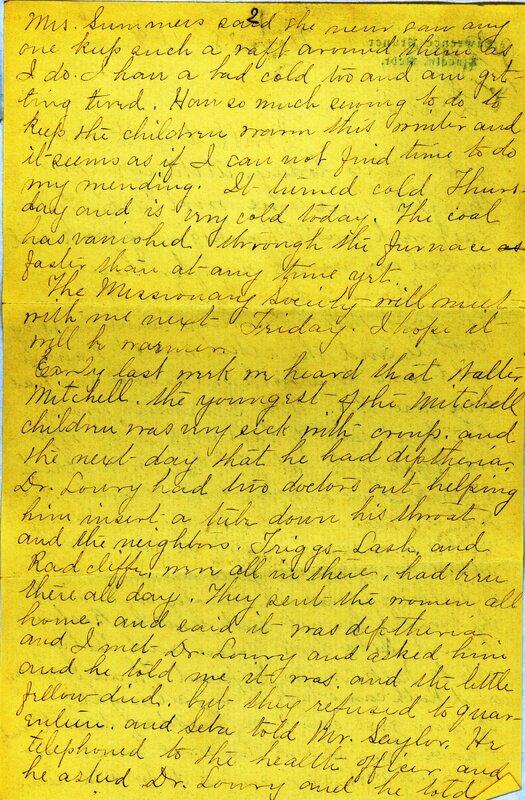 2
Mrs. Summers said she never saw any
one keep such a raft around them as
I do. I have a bad cold too and am get-
ting tired. Have so much sewing to do to
keep the children warm this winter and
it seems as if I can not find time to do
my mending. It turned cold Thurs-
day and is very cold today. The coal
has vanished through the furnace as
faster than at any time yet.
The Missionary Society will meet
with me next Friday. I hope it
will be warmer.
Early last week we heard that Walter
Mitchell, the youngest of the Mitchell
children was very sick with croup. and
the next day that he had diptheria.
Dr. Lowry had two doctors out helping
him insert a tube down his throat.
and the neighbors. Triggs Lash, and
Radcliffe, were all in there, had been
there all day. They sent the women all
home. and said it was diptheria
and I met Dr. Lowry and asked him
and he told me it was. and the little
fellow died. but they refused to quar-
entine. and Seba told Mr. Saylor. He
telephoned to the health officer and
he asked Dr. Lowry and he told